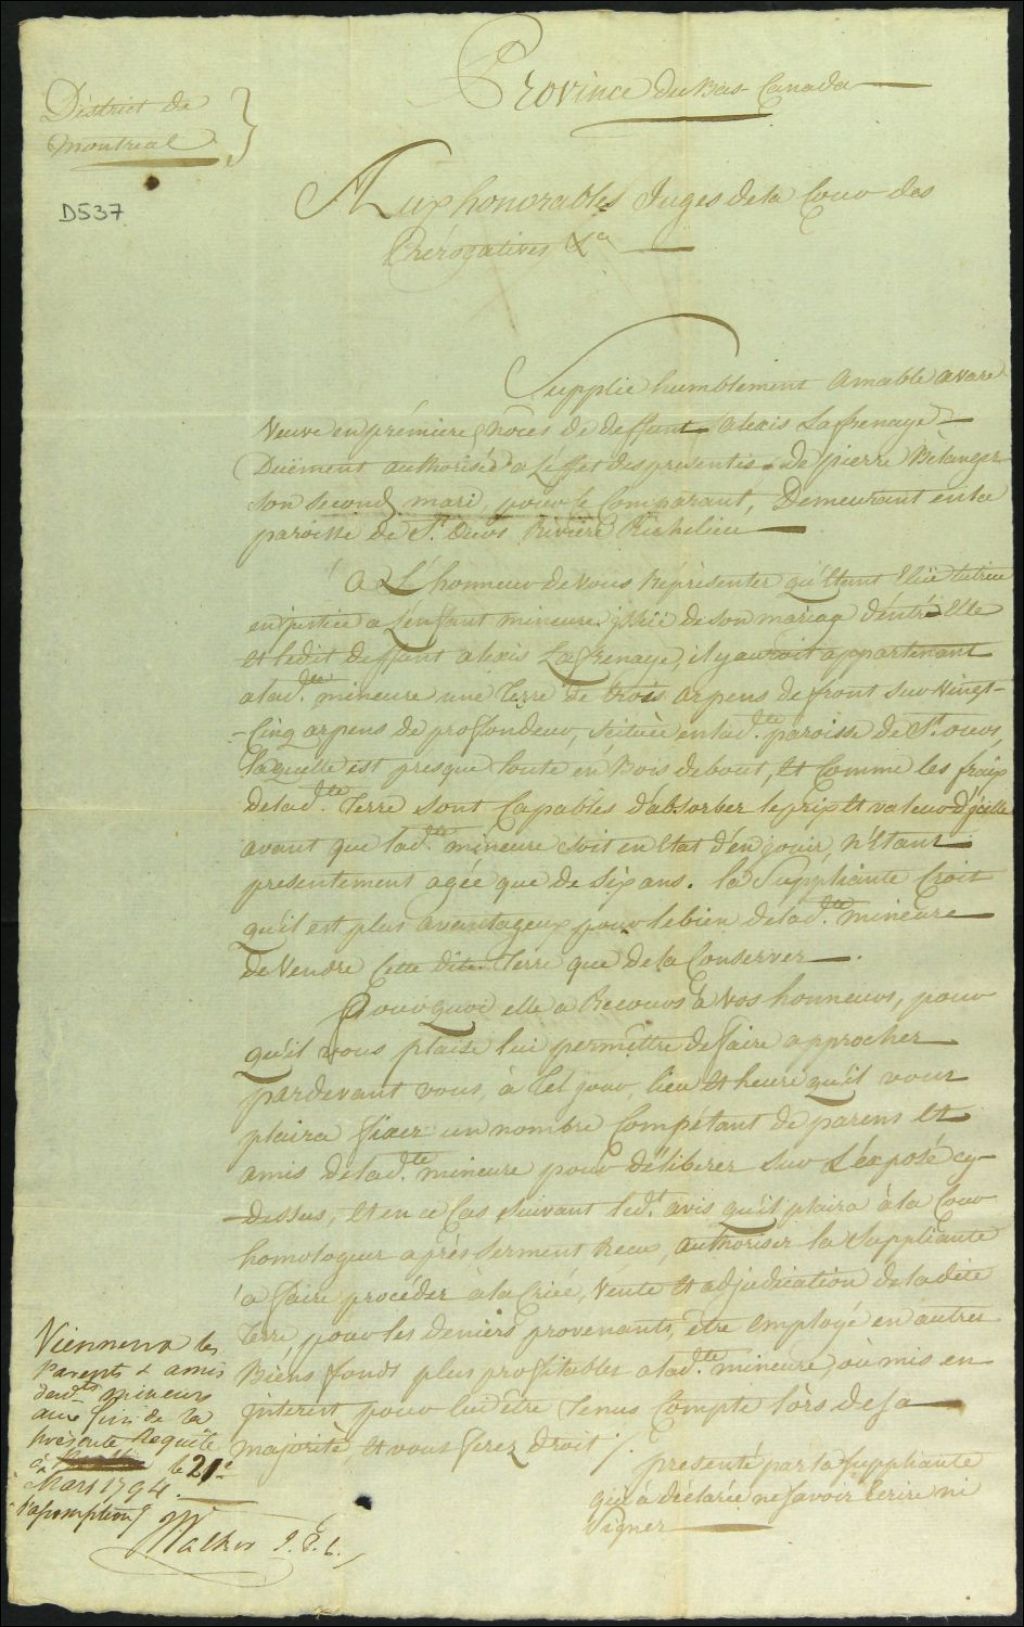 Province du Bas-Canada
District de
Montreal
D537
Aux honorables Juges de la Cour des
Prérogatives &ca
Supplie humblement Amable avare
Veuve en prémiere noces de deffunt Alexis Lafrenaye
Duëment authorisée a L'éffet des presentes de pierre Bèlanger
son second mari, pour ce Comparant, Demeurant en la
paroisse de St. Ours Riviere Richelieu
A L'honneur de vous Réprèsenter qu'Etant Elüe tutrice
en justice a L'enfant mineure issüe de son mariage d'entre Elle
et ledit deffunt alexis Lafrenaye, il y auroit appartenant
a lad.te mineure une Terre de trois arpens de front sur vingt-
-Cinq arpens de profondeur, scituée en lad.te paroisse de St. ours,
laquelle est presque toute en Bois debout, et Comme les fraix
de lad.te Terre sont Capables d'absorber le prix et valeur d'ycelle
avant que lad.te mineure soit en Etat d'en jouir, n'étant
presentement agée que de six ans. la Suppliante Croit
qu'il est plus avantageux pour le bien de lad.te mineure
de Vendre Cette dite Terre que de la Conserver.
Pourquoi elle a Recours à vos honneurs, pour
qu'il vous plaise lui permettre de faire approcher
pardevant vous, à tel jour, lieu et heure qu'il vous
plaira fixer un nombre Compétant de parens et
amis de lad.te mineure pour déliberer sur L'éxposé cy-
-dessus, et en ce Cas suivant led.t avis qu'il plaira à la Cour
homologuer après serment Recu, authoriser la Suppliante
a faire procéder à la Criée, Vente et adjudication de ladite
Terre, pour les deniers provenants, être Employé en autres
Biens fonds plus profitables a lad.te mineure, où mis en
interest pour lui être Tenus Compte lors de sa
majorité et vous ferez droit ./.
presenté par la suppliante
qui à déclarée ne savoir Ecrire ni
Signer
Viennent les
Parents & amis
desd.ts mineurs
aux fins de la
présente Requête
à le 21e
Mars 1794.
l'assomption
Walker J.P.C.